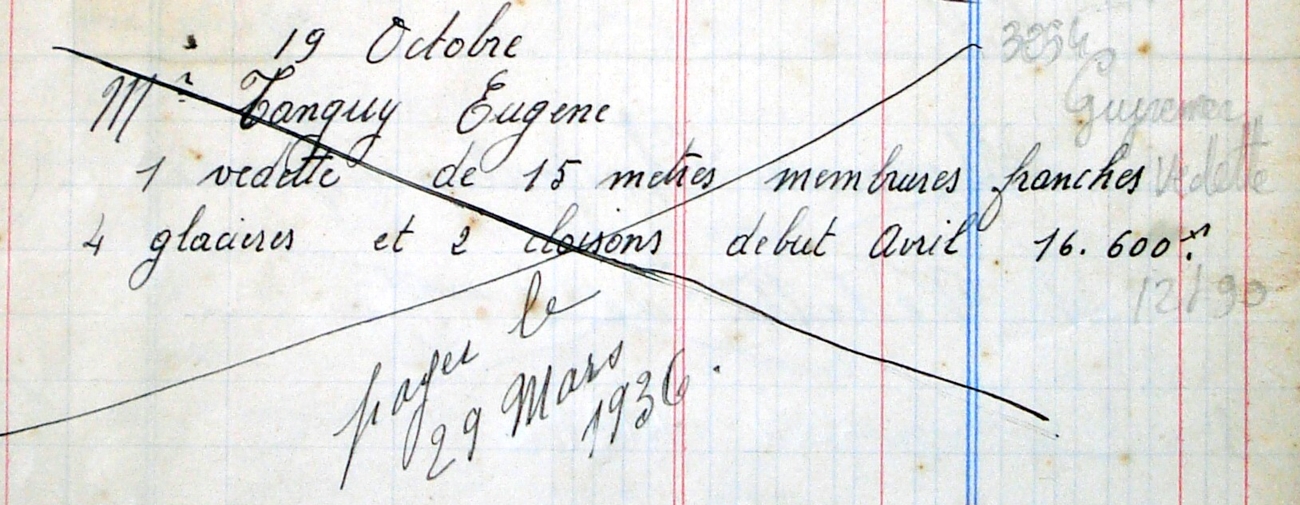 19 Octobre
3254
Mr Tanguy Eugene
Guynemer
1 vedette de 15 metres membrures franches
vedette
4 glacieres et 2 cloisons debut Avril 16.600 frs
payer le
29 Mars
1936.